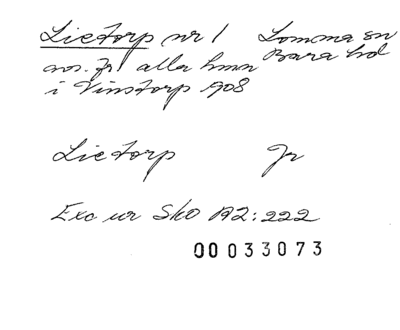 Lietorp nr 1 Lomma sn
Bara hd
nos. fr alla hmn
i Vinstorp 908
Lietorp Jr
Exc ur Sko A2:222
00033073